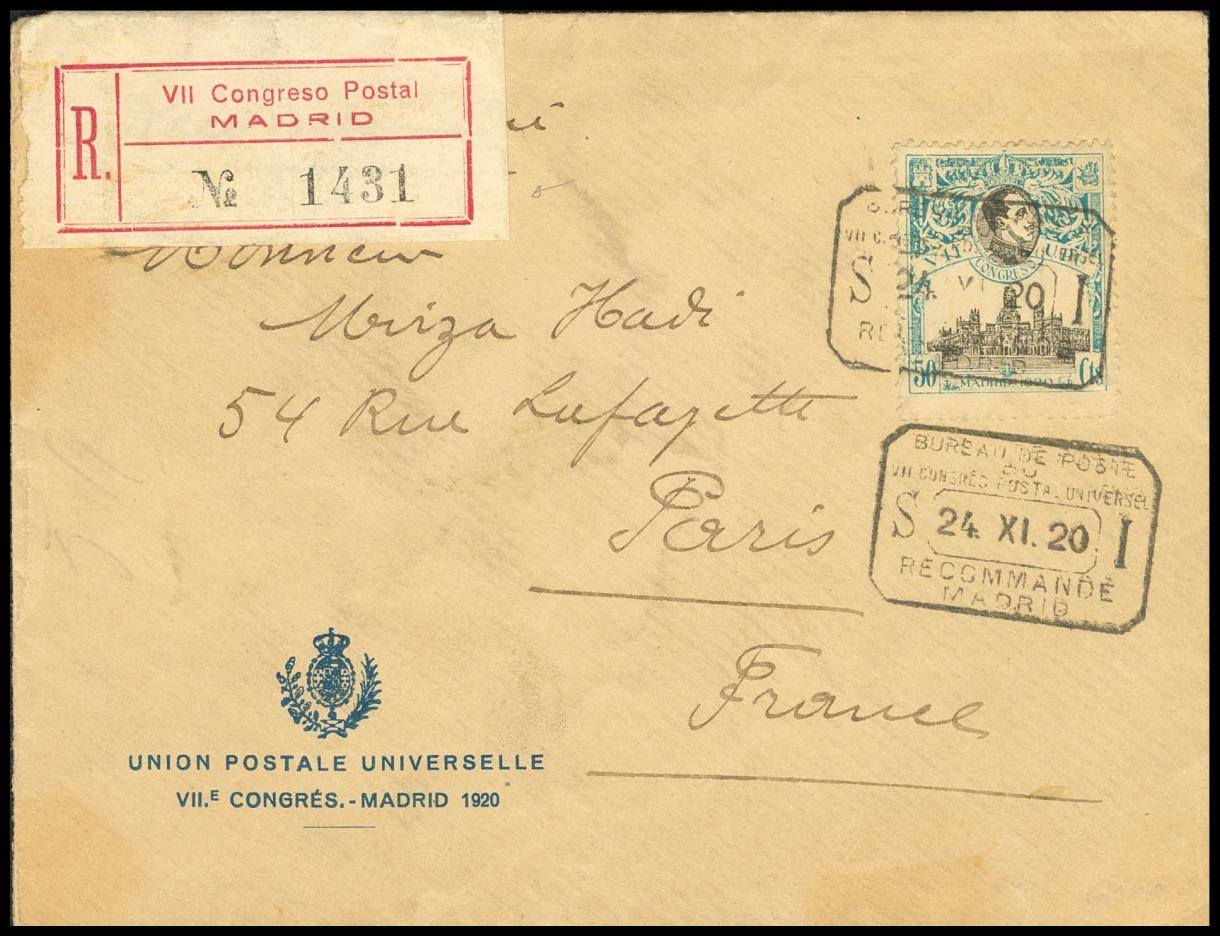 VII Congreso Postal
MADRID
R.
№ 1431
Monsieur
Mirza Hadi
54 Rue Lafayette
Paris
France
VII
CONGRESO
50 MADRID 1920 Cts
VII C.
S 24. XI. 20 I
BUREAU DE POSTE
DU
VII CONGRÈS POSTAL UNIVERSEL
S 24. XI. 20. I
RECOMMANDÉ
MADRID
UNION POSTALE UNIVERSELLE
VII.E CONGRÉS.-MADRID 1920